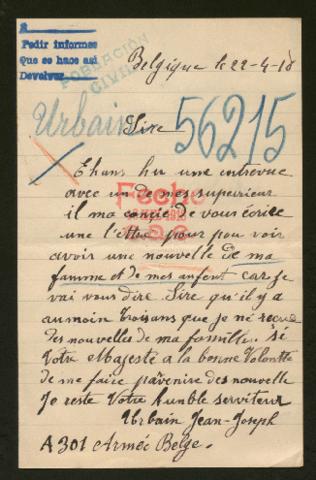 Pedir informes
Que se hace asi
Devolver
POBLACIÓN
CIVIL
Belgique le 22-4-18
Urbain
Sire
56215
Ehans hu une entrevue
avec un de mes superieur
il ma conçie de vous écrice
une l'ettre pour pou voir
avoir une nouvelle de ma
famme et de mes anfent car je
vai vous dire. Sire qu'il y a
aumoin troisans que je né recue
des nouvelles de ma famille. si
Votre Majesté a la bonne Volontte
de me faire parvenire des nouvelle
Je reste Votre humble serviteur
Urbain Jean-Joseph
A301 Armée Belge.
Fecho